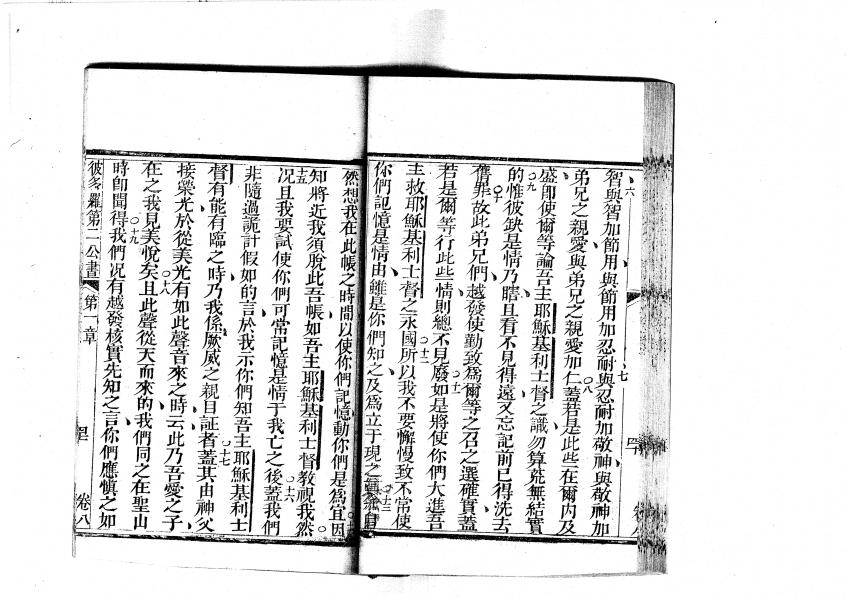 智與智加節用與節用加忍耐與忍耐加敬神與敬神加
弟兄之親愛與弟兄之親愛加仁蓋若是此些在爾內及
盛即使爾等論吾主耶穌基利士督之識勿算荒無結實
的惟彼缺是情乃瞎且看不見得遠又忘記前已得洗去
舊罪故此弟兄們越發使勤致為爾等之召之選確實蓋
若是爾等行此些情則總不見廢如是將使你們大進吾
主救耶穌基利士督之永國所以我不要懈慢致不常使
你們記憶是情由雖是你們知之及為立于現之真
然想我在此帳之時間以使你們記憶動你們是為宜因
知將近我須脫此吾帳如吾主耶穌基利士督教視我然
况且我要試使你們可常記憶是情于我亡之後蓋我們
非隨過詭計假如的言於我示你們知吾主耶穌基利士
督有能有臨之時乃我係厥威之親目証者蓋其由神父
接榮光於從美光有如此聲音來之時云此乃吾愛之子
在之我見美悅矣且此聲從天而來的我們同之在聖山
時卽聞得我們况有越發核實先知之言你們應慎之如
彼多羅第二公書 第一章 四 卷八